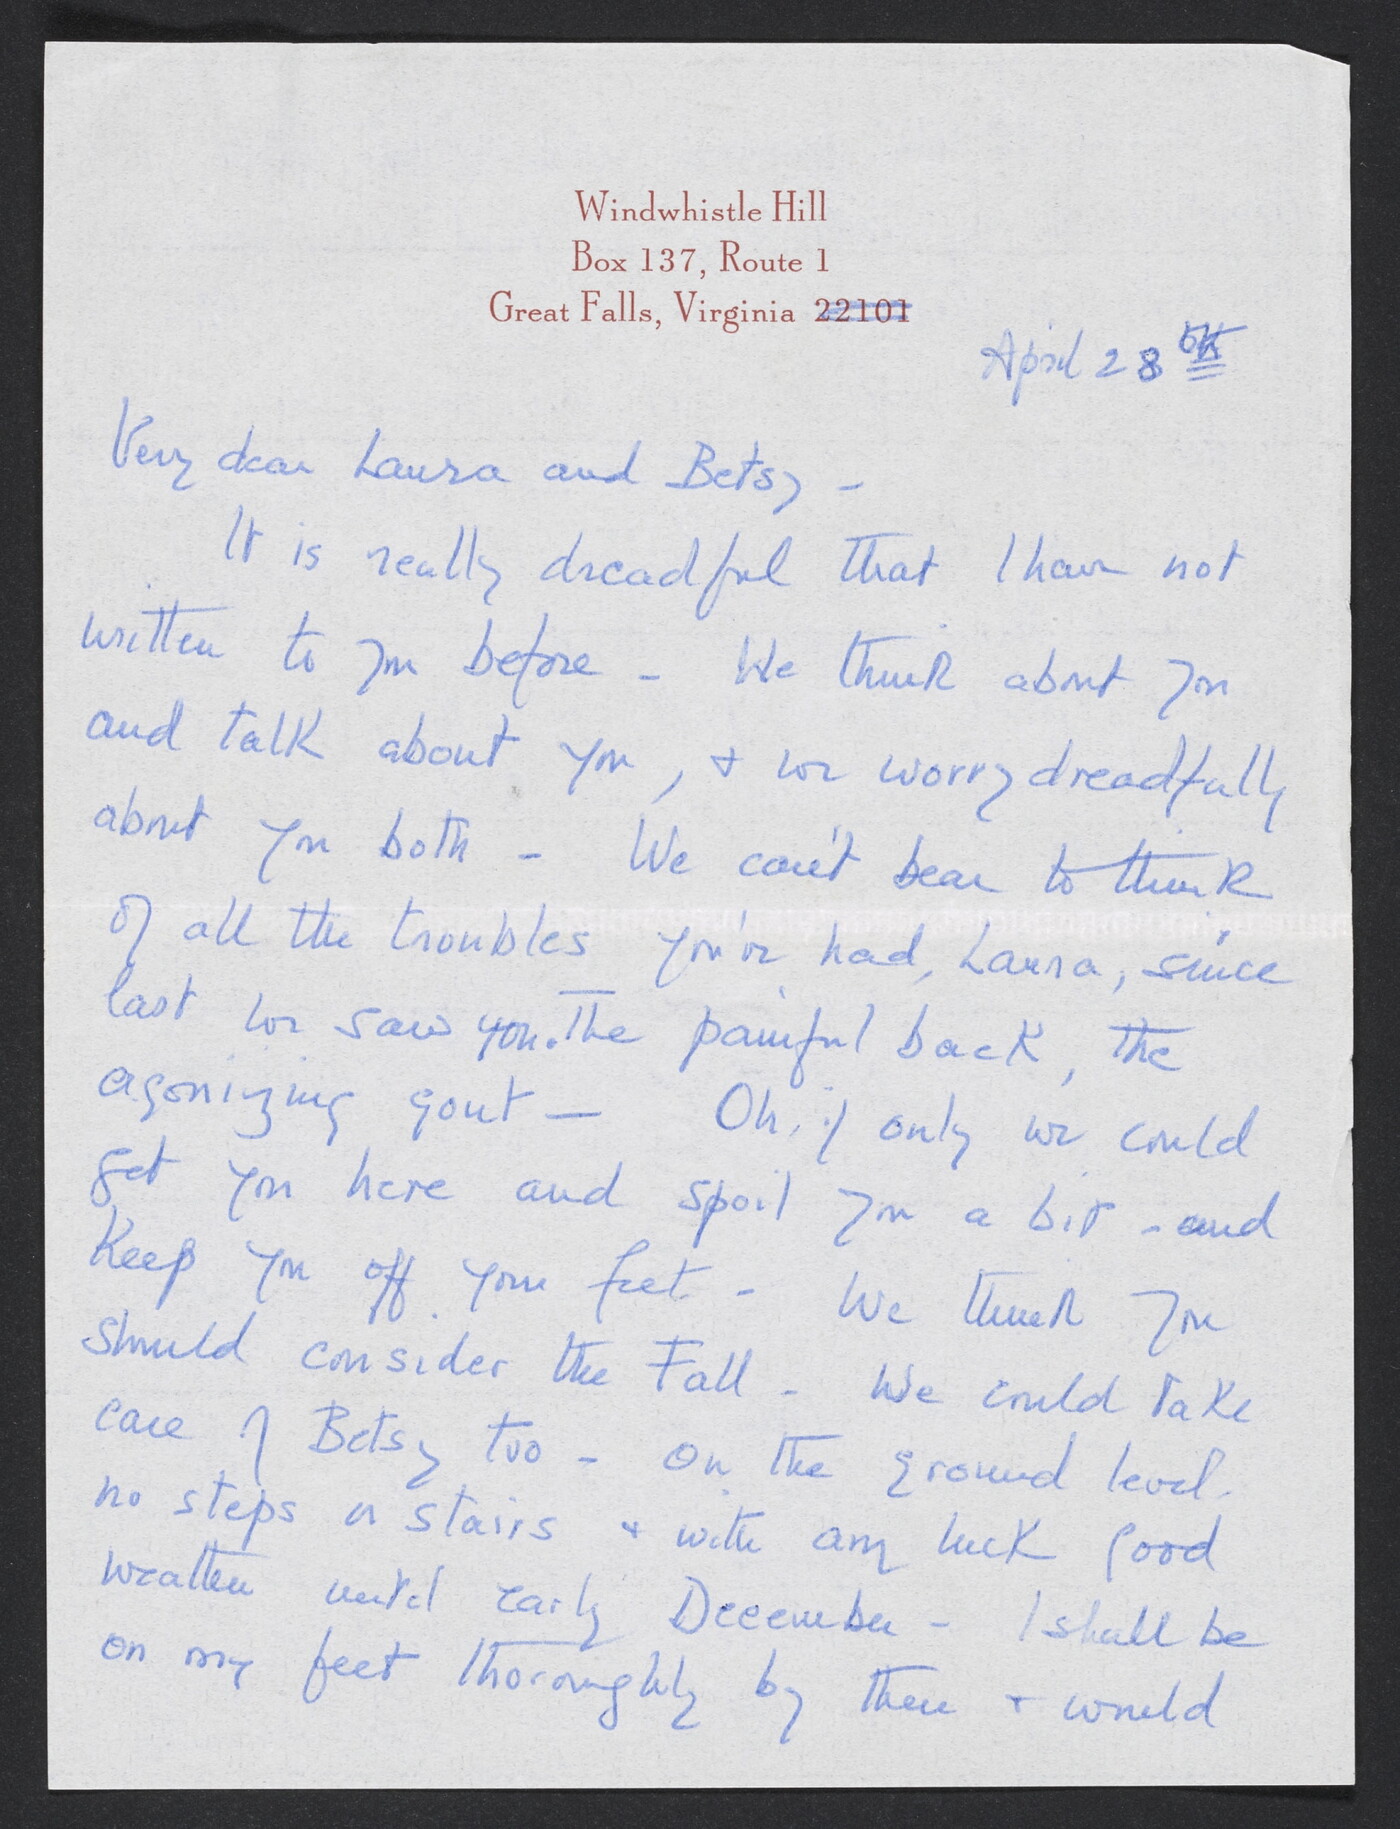 Windwhistle Hill
Box 137, Route 1
Great Falls, Virginia 22101
April 28th
Very dear Laura and Betsy -
It is really dreadful that I have not
written to you before - We think about you
and talk about you, + we worry dreadfully
about you both - We can't bear to think
of all the troubles you've had, Laura, since
last we saw you. The painful back, the
agonizing gout - Oh, if only we could
get you here and spoil you a bit - and
Keep you off your feet - We think you
should consider the Fall - We could take
care of Betsy too - On the ground level.
no steps or stairs + with any luck good
weather until early December - I shall be
on my feet thoroughly by then + would